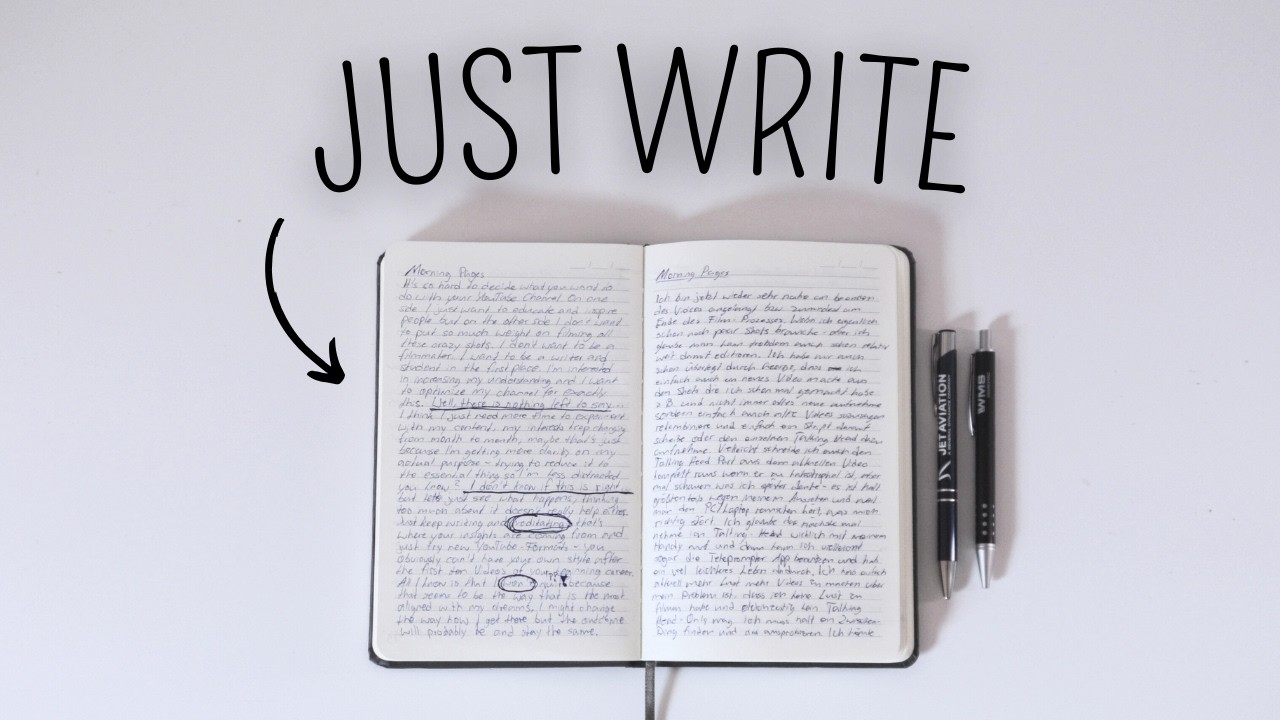 JUST WRITE
Morning Pages
It's so hard to decide what you want to
do with your YouTube Channel. On one
side I just want to educate and inspire
people but on the other side I don't want
to put so much weight on filming all
these crazy shots. I don't want to be a
filmmaker. I want to be a writer and
student in the first place. I'm interested
in increasing my understanding and I want
to optimize my channel for exactly
this. Well, there is nothing left to say...
I think I just need more time to experiment
with my content, my interests keep changing
from month to month, maybe that's just
because I'm getting more clarity on my
actual purpose - trying to reduce it to
the essential thing so I'm less distracted
you know? I don't know if this is right
but let's you see what happens, thinking
too much about it doesn't really help either.
Just keep writing and meditating that's
where your insights are coming from and
just try new YouTube Formats - you
obviously can't have your own style after
the first ten Videos of your career.
All I know is that because
that seems to be the way that is the most
aligned with my dreams. I might change
the way how I get there but the outcome
will probably be and stay the same.
Morning Pages
Ich bin jetzt wieder sehr nahe am
des Videos angelangt bzw. zumindest am
Ende des Filming Prozesses. Wobei ich eigentlich
schon noch paar Shots brauche - aber ich
glaube man kann trotzdem auch schon relativ
weit damit editieren. Ich habe mir auch
schon überlegt durch dass ich
einfach auch ein neues Video mache aus
den Shots die ich schon mal gemacht habe
z.B. und nicht immer alles neu aufnehme
sondern einfach auch alte Videos
rekombiniere und einfach ein Skript damit
schreibe oder den einzelnen Talking Head dazu
aufnehme. Vielleicht schreibe ich auch den
Talking Head Part aus dem aktuellen Video
komplett raus wenn er zu katastrophal ist, aber
mal schauen was ich später denke - es ist halt
größtenteils wegen meinem und weil
man den PC/Laptop rauschen hört, was mich
richtig stört. Ich glaube das nächste mal
nehme ich Talking Head wirklich mit meinem
Handy auf und dann kann ich vielleicht
sogar die Teleprompter App benutzen und hab
ein viel leichteres Leben dadurch. Ich einfach
mehr Lust mehr Videos zu machen aber
mein Problem ist, dass ich keine Lust zu
filmen habe und gleichzeitig kein Talking
Head-Only mag. Ich muss halt ein Zwischen-
Ding finden und ausprobieren. Ich könnte
JET AVIATION
WMS